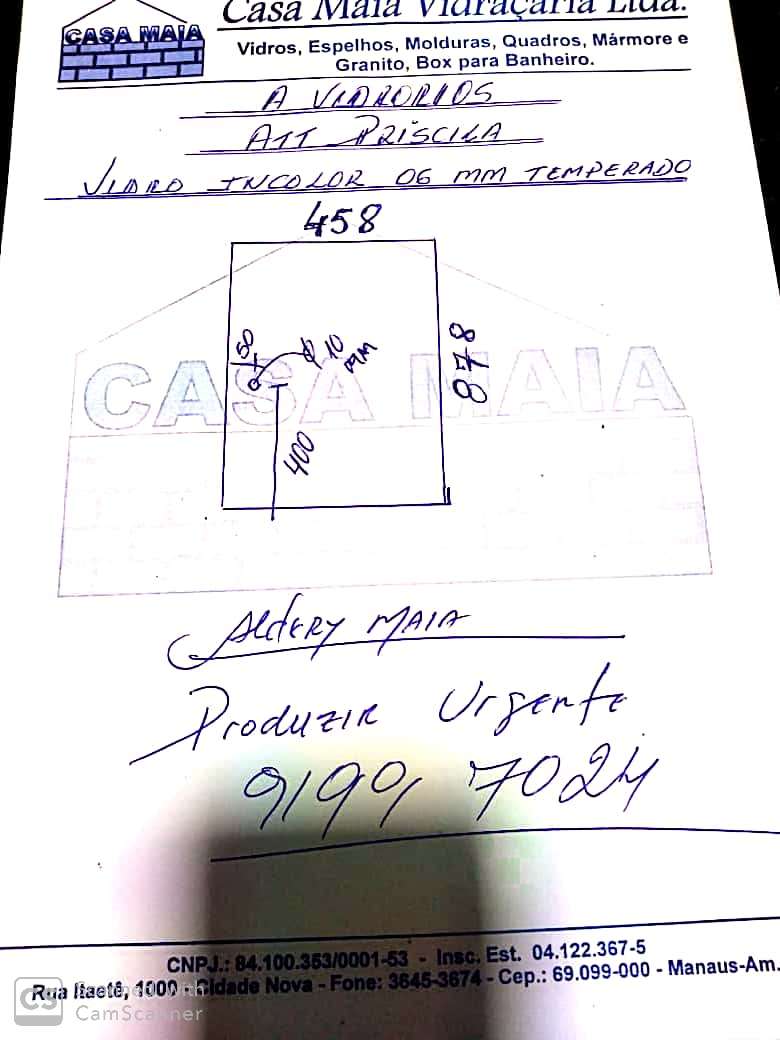 Casa Maia Vidraçaria Ltda.
CASA MAIA
Vidros, Espelhos, Molduras, Quadros, Mármore e
Granito, Box para Banheiro.
A VIDRORIOS
ATT PRISCILA
VIDRO INCOLOR 06 MM TEMPERADO
458
50
Ø 10
MM
878
CASA MAIA
400
ALDERY MAIA
PRODUZIR Urgente
9199 7024
CNPJ.: 84.100.353/0001-53 - Insc. Est. 04.122.367-5
Rua Itaetê, 1000 - Cidade Nova - Fone: 3645-3674 - Cep.: 69.099-000 - Manaus-Am.
CS Scanned with
CamScanner